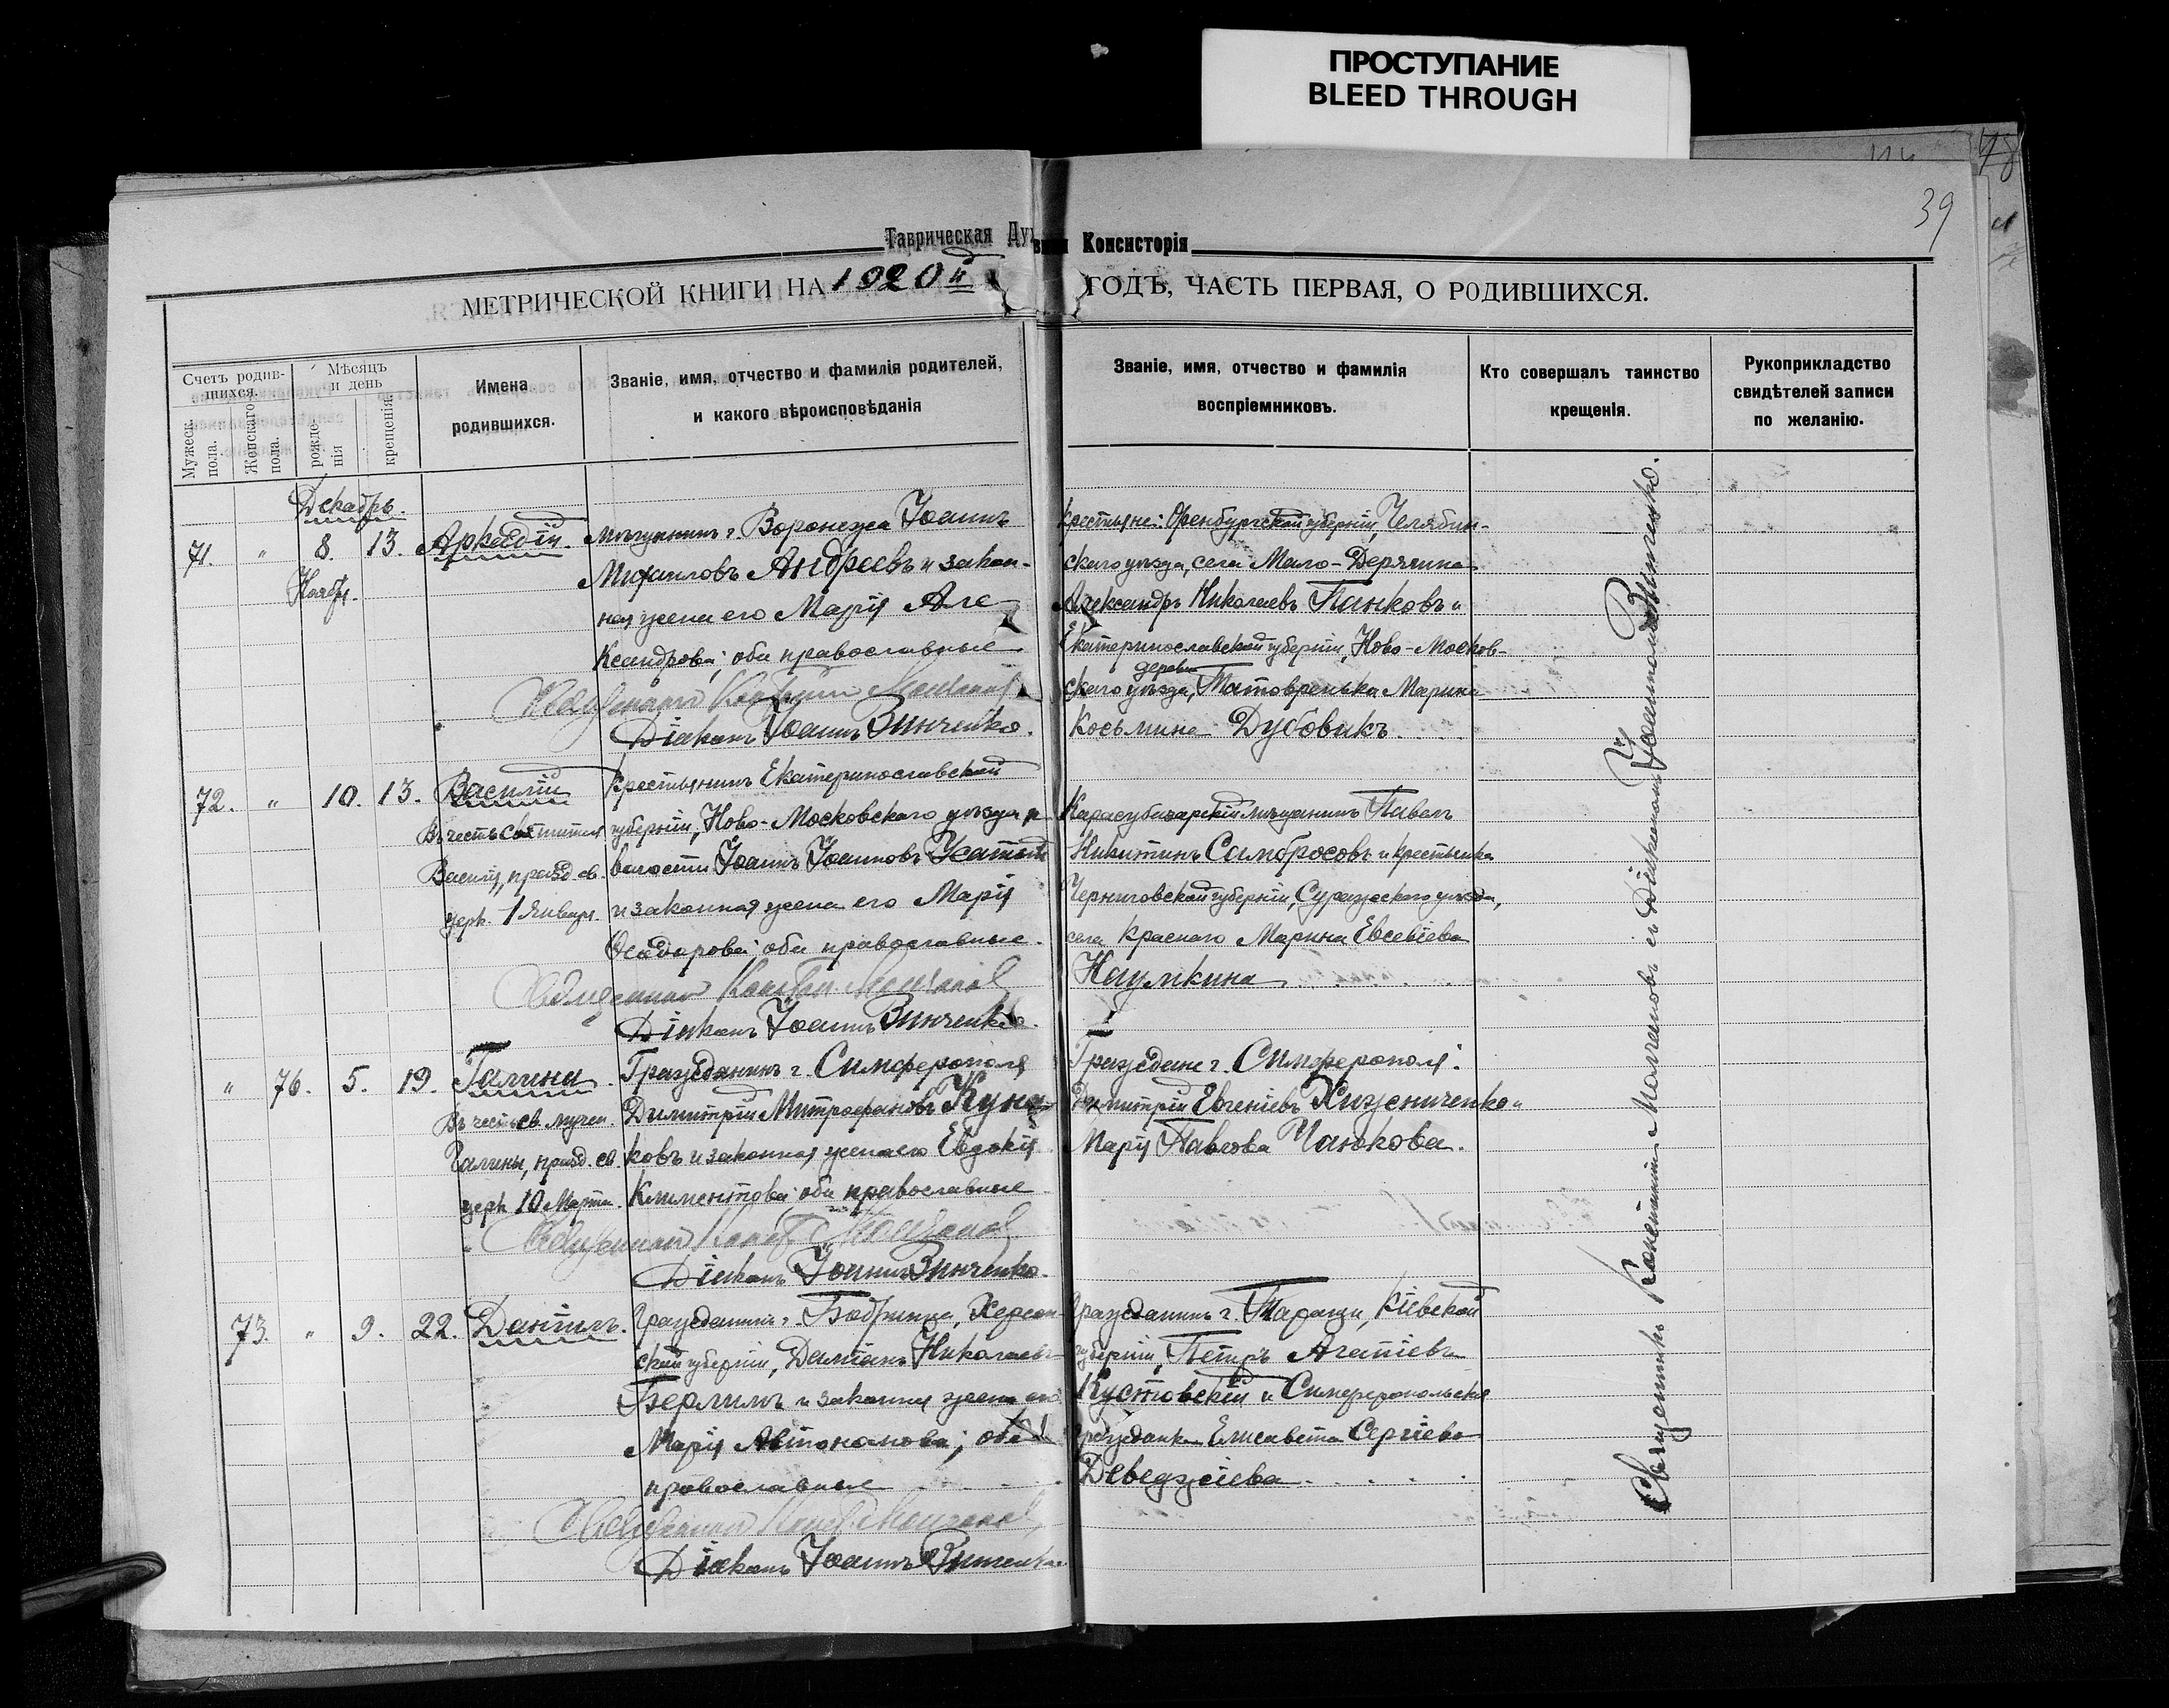 ПРОСТУПАНИЕ
BLEED THROUGH
39
Таврическая Духовная Консисторія
МЕТРИЧЕСКОЙ КНИГИ НА 1920й ГОДЪ, ЧАСТЬ ПЕРВАЯ, О РОДИВШИХСЯ.
Счетъ родив-
шихся.
Мужеск. пола.
Женскаго пола.
Мѣсяцъ
и день
рожде-
нія
крещенія.
Имена
родившихся.
Званіе, имя, отчество и фамилія родителей,
и какого вѣроисповѣданія
Званіе, имя, отчество и фамилія
воспріемниковъ.
Кто совершалъ таинство
крещенія.
Рукоприкладство
свидѣтелей записи
по желанію.
Декабрь.
71. " 8. 13. Аркадій.
Ноября.
Мѣщанинъ г. Воронежа Іоаннъ
Михаиловъ Андреевъ и закон-
ная жена его Марія Але
ксандрова; оба православные
Діаконъ Іоаннъ Зинченко.
Крестьяне: Оренбургской губерніи, Челябин-
скаго уѣзда, села Мало-Дерягина
Александръ Николаевъ Панковъ и
Екатеринославской губерніи, Ново-Москов-
деревни
скаго уѣзда, Марина
Косьмина Дубовикъ.
72. " 10. 13. Василій
Въ честь Святителя
Василія, празд. св.
церк. 1 Января.
Крестьянинъ Екатеринославской
губерніи, Ново-Московскаго уѣзда и
волости Іоаннъ Іоанновъ Усатый
и законная жена его Марія
Ѳеодорова; оба православные.
Діаконъ Іоаннъ Зинченко.
Карасубазарскій мѣщанинъ Павелъ
Никитинъ Самбросовъ и крестьянка
Черниговской губерніи, Суражскаго уѣзда,
села Краснаго Марина Евсевіева
Наумкина
" 76. 5. 19. Галина.
Въ честь св. мучен.
Галины, празд. св.
церк. 10 Марта.
Гражданинъ г. Симферополя
Димитрій Митрофановъ Куна
ковъ и законная жена его Евдокія
Климентова; оба православные
Діаконъ Іоаннъ Зинченко.
Граждане г. Симферополя:
Димитрій Евгеніевъ Хижниченко и
Марія Павлова Чанокова.
73. " 9. 22. Даніилъ.
Гражданинъ г. Бобринца, Херсон-
ской губерніи, Даміанъ Николаевъ
Берлимъ и законная жена его
Марія Автономова; оба
православные
Діаконъ Іоаннъ Зинченко
Гражданинъ г. Таращи, Кіевской
губерніи, Петръ Агапіевъ
Кустовскій и Симферопольская
гражданка Елисавета Сергіева
Деведжіева
Священникъ Константинъ Молчановъ съ Діакономъ Іоанномъ Зинченко.